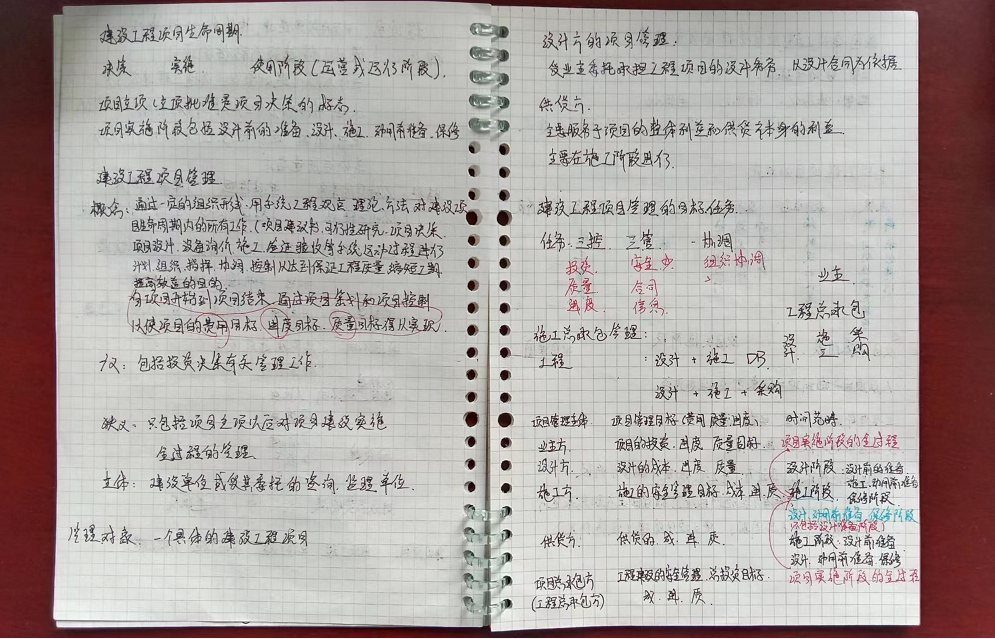 建设工程项目生命周期.
决策 实施 使用阶段(运营或运行阶段).
项目立项(立项批准是项目决策的标志.
项目实施阶段包括设计前的准备、设计、施工、动用前准备、保修
建设工程项目管理.
概念:通过一定的组织形式,用系统工程观点 理论 方法 对建设项
目生命周期内的所有工作.(项目建议书.可行性研究.项目决策.
项目设计.设备询价.施工.签证.验收等系统运动过程进行
计划.组织.指挥.协调.控制以达到保证工程质量.缩短工期.
提高效益的目的.
自项目开始到项目结束.通过项目策划和项目控制
以使项目的费用目标.进度目标.质量目标得以实现.
广义:包括投资决策有关管理工作.
狭义、只包括项目立项以后对项目建设实施
全过程的管理
主体:建设单位或受其委托的咨询.监理单位.
管理对象.一个具体的建设工程项目
设计方的项目管理.
受业主委托承担工程项目的设计任务.以设计合同为依据
供货方.
主要服务于项目的整体利益和供货方本身的利益
主要在施工阶段进行.
建设工程项目管理的目标任务.
任务.三控 三管 一协调
投资 安全 组织协调
质量 合同 业主
进度 信息
工程总承包
施工总承包管理: 设计 施工 采购
工程 :设计+施工 DB
设计+施工+采购
项目管理主体 项目管理目标(费用 质量 进度) 时间范畴.
业主方. 项目的投资.进度.质量目标. 项目实施阶段的全过程
设计方. 设计的成本.进度 质量. 设计阶段:设计前的准备
施工.动用前准备
施工方. 施工的安全管理目标.成本 进 质 施工阶段. 保修阶段
设计.动用前准备.保修阶段
(不包括设计准备阶段)
供货方. 供货的 成.进.质. 施工阶段:设计前准备
设计.动用前准备.保修
项目总承包方 工程建设的安全管理 总投资目标. 项目实施阶段的全过程
(工程总承包方) 成.进.质.